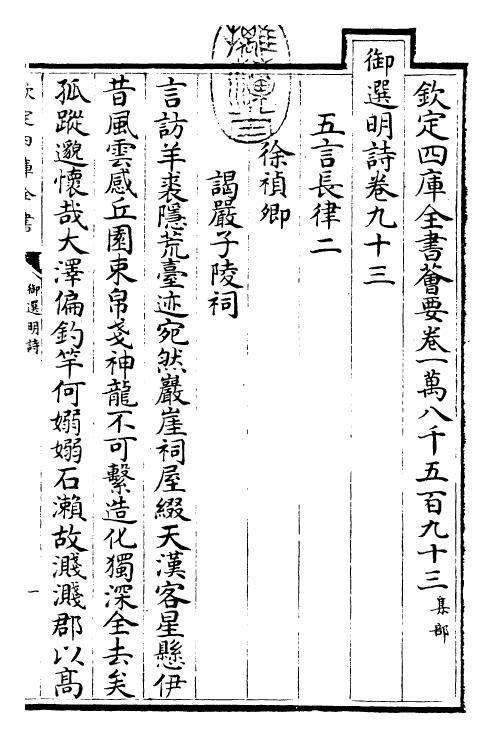 欽定四庫全書薈要卷一萬八千五百九十三 集部
御選明詩卷九十三
五言長律二
徐禎卿
謁嚴子陵祠
言訪羊裘隱荒臺迹宛然巖崖祠屋綴天漢客星懸伊
昔風雲感丘園束帛戔神龍不可繫造化獨深全去矣
孤蹤邈懷哉大澤偏釣竿何嫋嫋石瀨故濺濺郡以高
欽定四庫全書
御選明詩
一